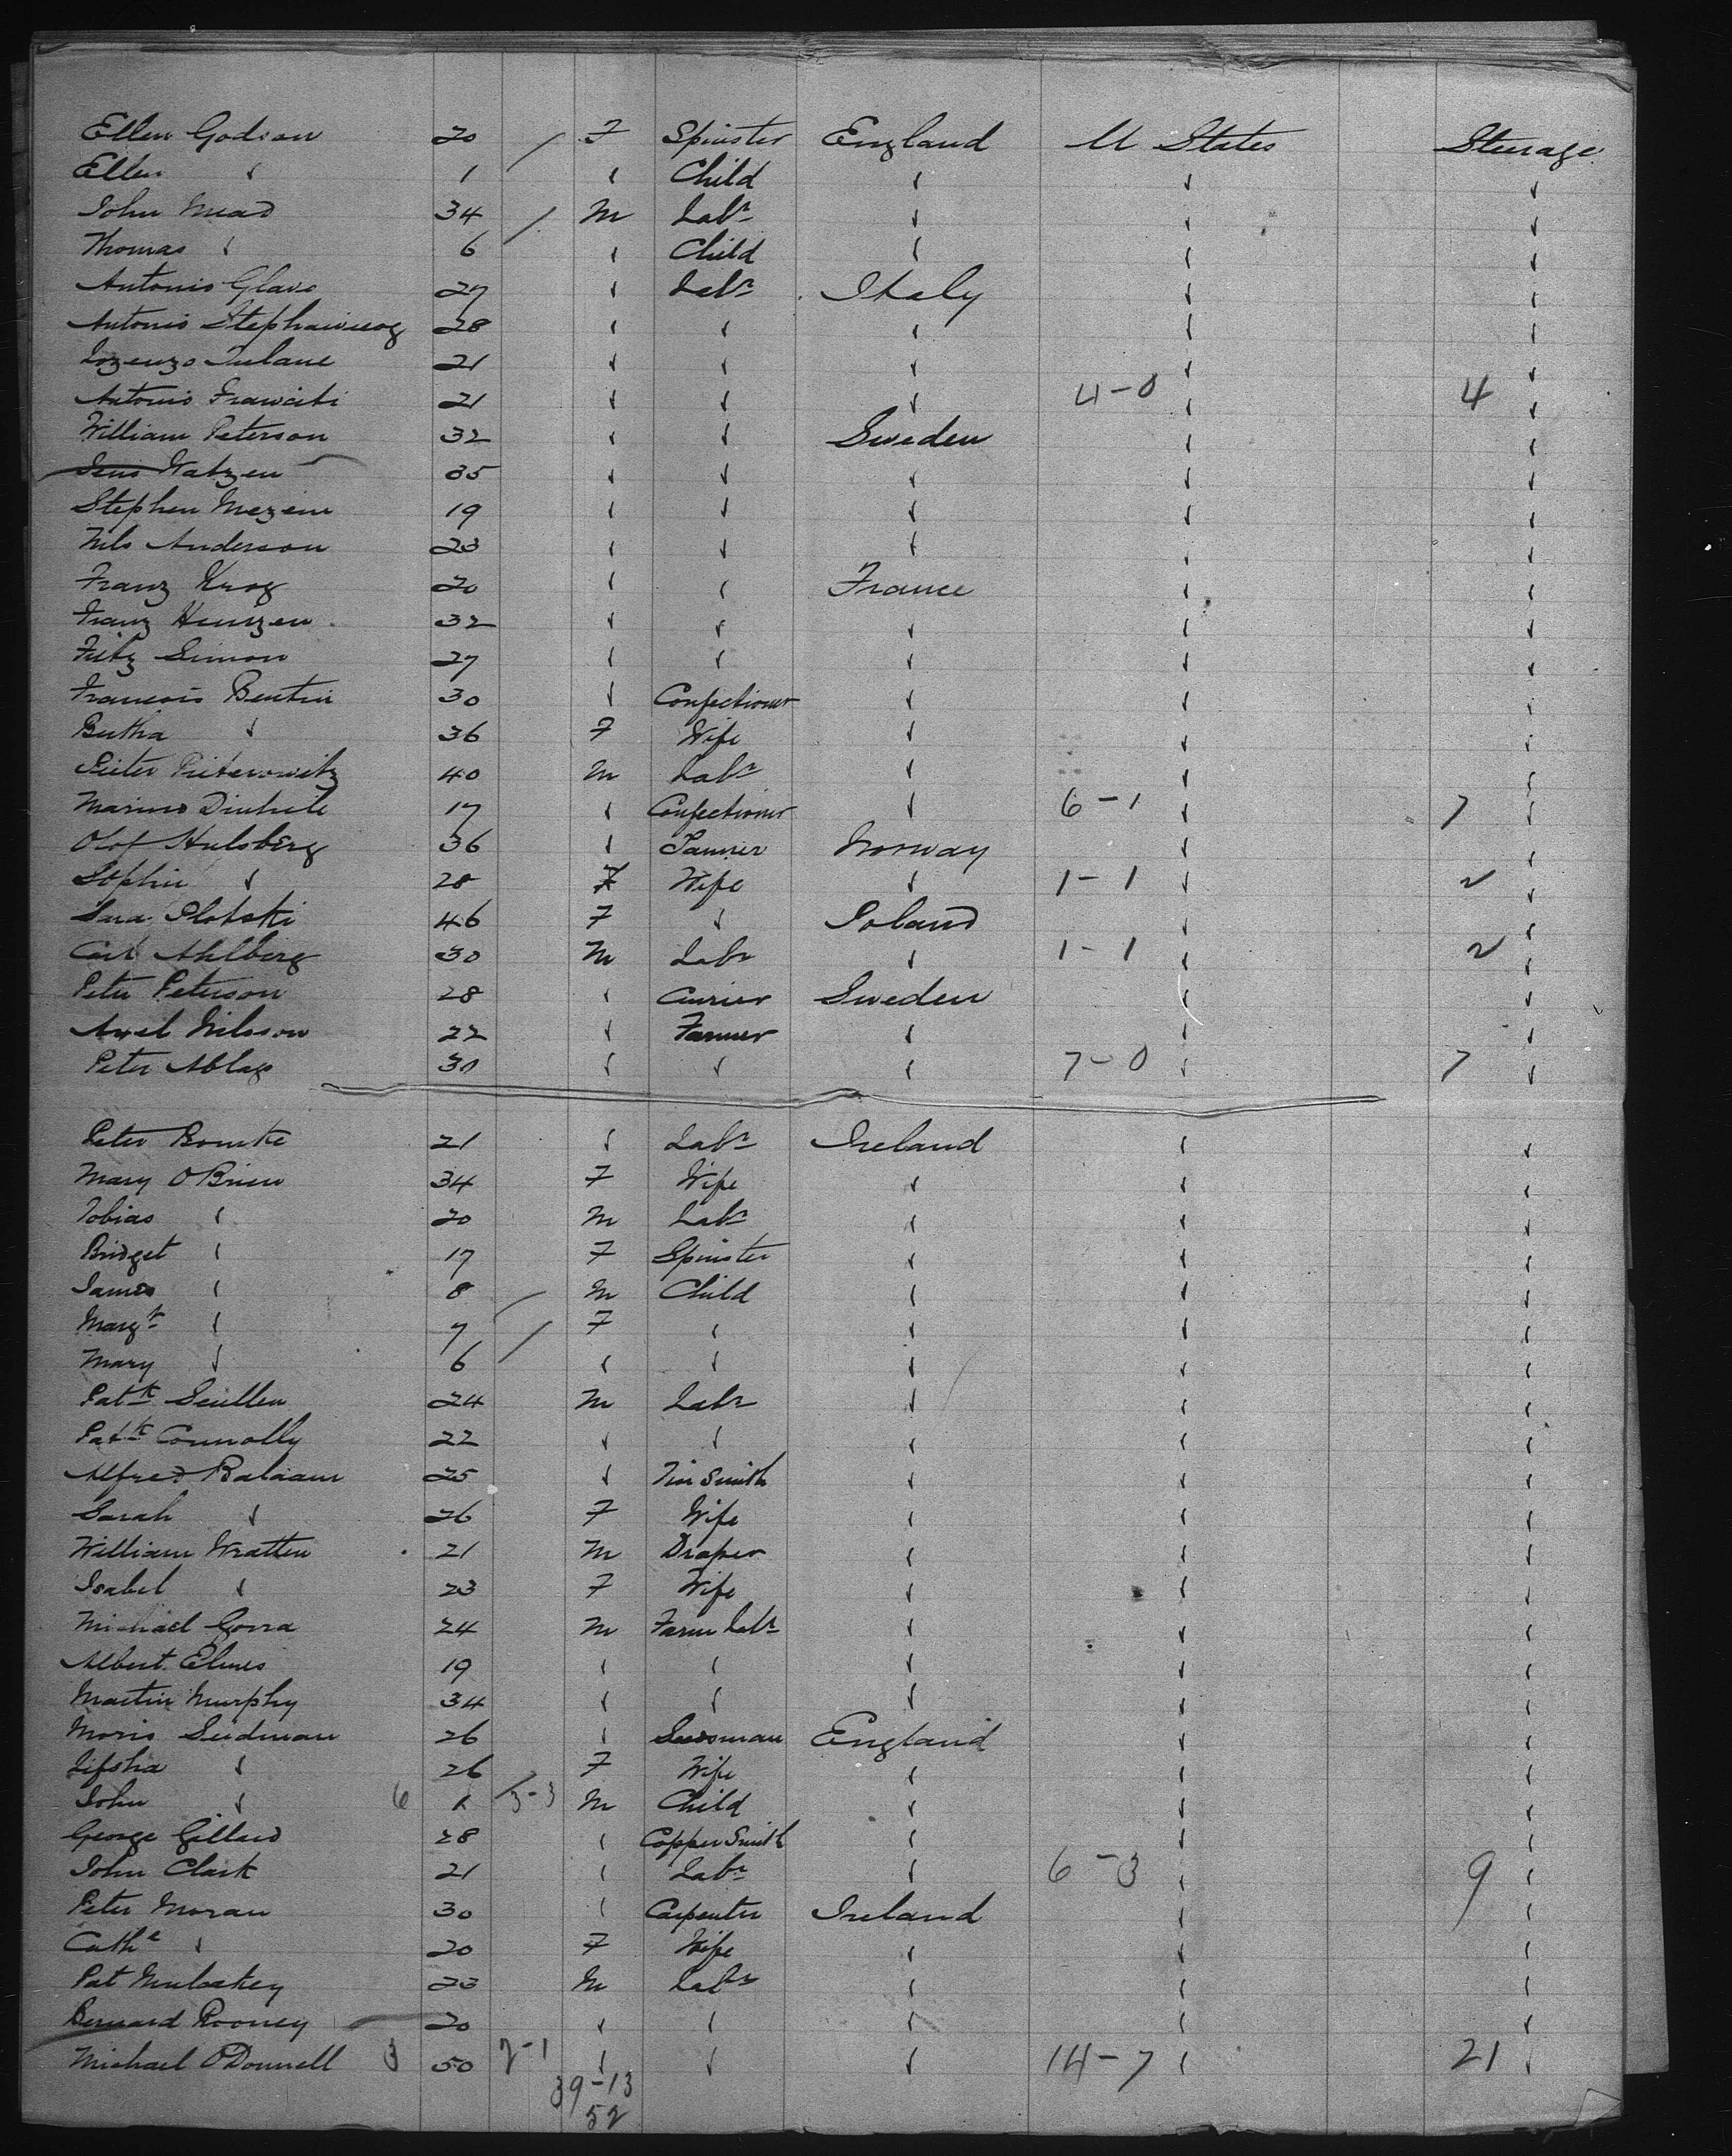 Ellen Godson 20 / F Spinster England U States Steerage
Ellen " 1 " Child " " "
John Mead 34 / M Labr " " "
Thomas " 6 " Child " " "
Antonio Glavo 27 " Labr Italy " "
Antonio 28 " " " " "
Lozenzo Tulane 21 " " " " "
Antonio 21 " " " 4-0 " 4 "
William Peterson 32 " " Sweden " "
Jens Watzen 35 " " " " "
Stephen 19 " " " " "
Nils Anderson 23 " " " " "
Franz Krog 20 " " France " "
Franz 32 " " " " "
Fritz Simon 27 " " " " "
Francois Bentin 30 " Confectioner " " "
Bertha " 36 F Wife " " "
Pieter Pieterowitz 40 M Labr " " "
Marino 17 " Confectioner " 6-1 " 7 "
Olof Hulsberg 36 " Norway " "
Sophie " 28 F Wife " 1-1 " 2 "
Sara Plotski 46 F " Poland " "
Carl Ahlberg 30 M Labr " 1-1 " 2 "
Peter Peterson 28 " Currier Sweden " "
Axel Nilsson 22 " Farmer " " "
Peter 30 " " " 7-0 " 7 "
Peter Bourke 21 " Labr Ireland " "
Mary O'Brien 34 F Wife " " "
Tobias " 20 M Labr " " "
Bridget " 17 F Spinster " " "
James " 8 / M Child " " "
Margt " 7 / F " " " "
Mary " 6 " " " " "
Patk Scullen 24 M Labr " " "
Patk Connolly 22 " " " " "
Alfred Balaam 25 " Tin Smith " " "
Sarah " 26 F Wife " " "
William Wratten 21 M Draper " " "
Isabel " 23 F Wife " " "
Michael Gorra 24 M Farm Labr " " "
Albert Elmes 19 " " " " "
Martin Murphy 34 " " " " "
Moris Seidman 26 " England " "
Lifsha " 26 F Wife " " "
John " 6 1 / 3-3 M Child " " "
George Gillard 28 " Copper Smith " " "
John Clark 21 " Labr " 6-3 " 9 "
Peter Moran 30 " Carpenter Ireland " "
Cathe " 20 F Wife " " "
Pat Mulcakey 23 M Labr " " "
Bernard Rooney 20 " " " " "
Michael O'Donnell 3 50 2-1 " " " 14-7 " 21 "
39-13
52